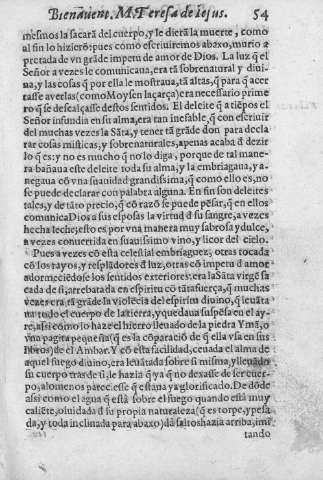 Bienauent. M. Teresa de Iesus. 54
mesmos la sacarã del cuerpo, y le dierã la muerte, como
al fin lo hizierõ: pues como escriuiremos abaxo, murio a
pretada de vn grãde impetu de amor de Dios. La luz q̃ el
Señor a vezes le comunicaua, era tã sobrenatural y diui-
na, y las cosas q̃ por ella le mostraua, tã altas, q̃ para q̃ acer
tasse a verlas (como Moysen la çarça) era necessario prime
ro q̃ se descalçasse destos sentidos. El deleite q̃ a tiẽpos el
Señor infundia en su alma, era tan inefable, q̃ con escriuir
del muchas vezes la Sãta, y tener tã grãde don para decla
rar cosas misticas, y sobrenaturales, apenas acaba d̃ dezir
lo q̃ es: y no es mucho q̃ no lo diga, porque de tal mane-
ra bañaua este deleite toda su alma, y la embriagaua, y a-
negaua cõ vna suauidad grandissima, q̃ como ello es, no
se puede declarar con palabra alguna. En fin son deleites
tales, y de tãto precio, q̃ cõ razõ se puede pẽsar, q̃ en ellos
comunica Dios a sus esposas la virtud d̃ su sangre, a vezes
hecha leche; esto es por vna manera muy sabrosa y dulce,
a vezes conuertida en suauissimo vino, y licor del cielo.
Pues a vezes cõ esta celestial embriaguez, otras tocada
cõ los rayos, y resplãdores d̃ luz, otras cõ impetu d̃ amor
adormeciẽdose los sentidos exteriores: era la Sãta virgẽ sa
cada de si, arrebatada en espiritu cõ tãta fuerça, q̃ muchas
vezes era tã grãde la violẽcia del espiritu diuino, q̃ leuãta
ua todo el cuerpo de la tierra, y quedaua suspẽsa en el ay-
re, assi como lo haze el hierro lleuado de la piedra Ymã, o
vna pagita pequeñita (q̃ es la cõparaciõ de q̃ ella vsa en sus
libros) de el Ambar. Y cõ esta facilidad, ceuada el alma de
aquel fuego diuino, era leuãtada sobre si misma, y lleuãdo
su cuerpo tras de si, le hazia q̃ ya q̃ no dexasse de ser cuer-
po, alomenos pareciesse q̃ estaua ya glorificado. De dõde
assi como el agua q̃ està sobre el fuego quando està muy
caliẽte, oluidada d̃ su propia naturaleza (q̃ es torpe, y pesa
da, y toda inclinada para abaxo) dà saltos hazia arriba, imi
tando